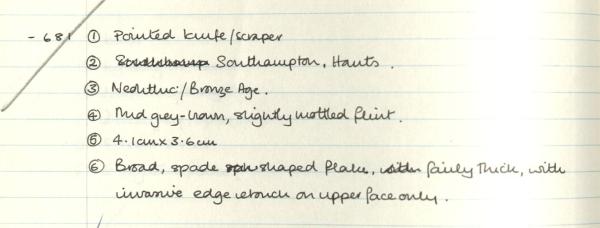 - 681 ① Pointed knife/scraper
② Southampton, Hants.
③ Neolithic/Bronze Age.
④ Mid grey-brown, slightly mottled flint.
⑤ 4.1cm x 3.6cm
⑥ Broad, spade shaped flake, fairly thick, with
invasive edge retouch on upper face only.